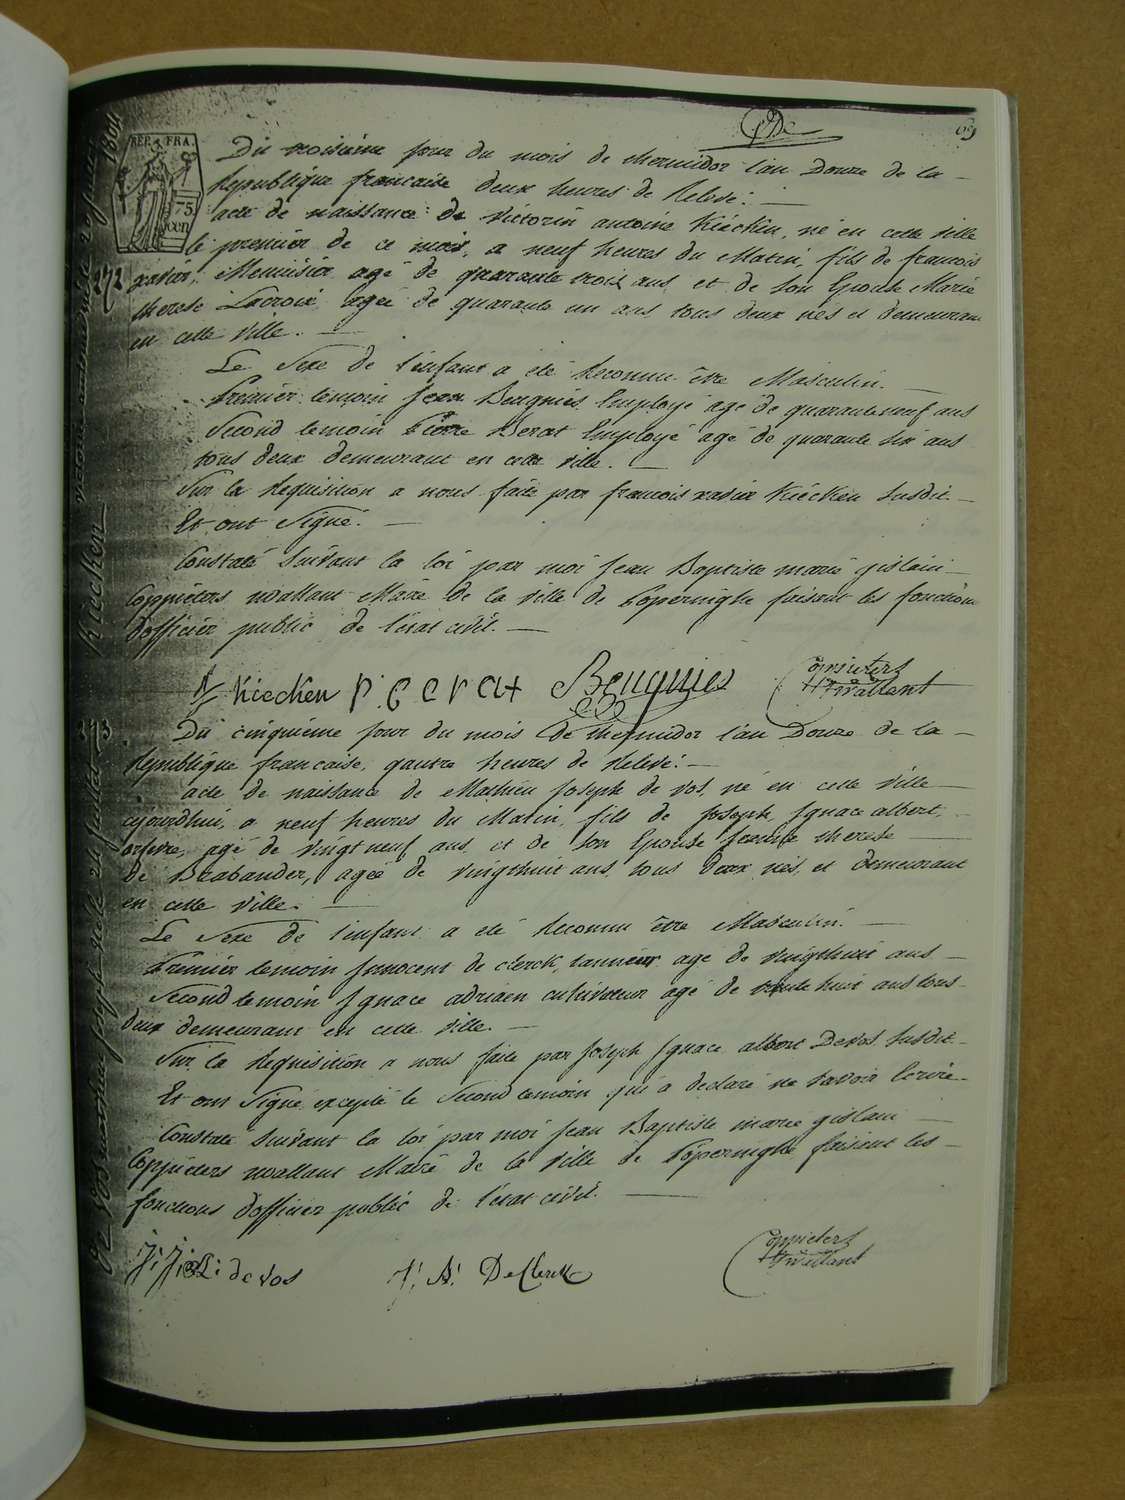 69
REP. FRA.
75
cen
Du troisieme jour du mois de thermidor l'an Douze de la
Republique francaise deux heures de Relevé.
acte de naissance de Victorin antoine Kiecken, né en cette ville
le premier de ce mois, a neuf heures du Matin, fils de francois
272
xavier, Menuisier agé de quarante trois ans, et de son Epouse Marie
therese Lacroix, agée de quarante un ans, tous deux nés et demeurant
en cette ville.
Le Sexe de l'enfant a été Reconnu être Masculin.
Premier temoin Jean Beugnies Employé agé de quaranteneuf ans
Second temoin Pierre Berat Employé agé de quarante six ans
tous deux demeurant en cette ville.
Sur la Requisition a nous faite par francois xavier Kiecken Susdit.
Et ont Signé.
Kiecken
Constaté Suivant la loi par moi Jean Baptiste marie gislain
Coppieters wallant Maire de la ville de Poperinghe faisant les fonctions
d'officier public de l'etat civil.
Kiecken P. Berat Beugnies Coppieters
Wallant
273
Du cinquieme jour du mois de thermidor l'an Douze de la
Republique francaise, quatre heures de Relevé.
acte de naissance de Mathieu Joseph de vos, né en cette ville
cejourdhui, a neuf heures du Matin, fils de Joseph Ignace albert,
orfevre, agé de vingtneuf ans, et de son Epouse therese
de Brabander, agée de vingthuit ans, tous deux nés, et demeurant
en cette ville.
Le Sexe de l'enfant a été Reconnu être Masculin.
Premier temoin Innocent de clerck, tanneur agé de vingthuit ans
Second temoin Ignace adriaen cultivateur agé de trente huit ans tous
deux demeurant en cette ville.
Sur la Requisition a nous faite par Joseph Ignace albert Devos Susdit.
Et ont Signé excepté le Second temoin qui a declaré ne savoir Ecrire.
Constaté Suivant la loi par moi Jean Baptiste marie gislain
Coppieters wallant Maire de la ville de Poperinghe faisant les
fonctions d'officier public de l'etat civil.
de vos J. A. DeClerck Coppieters
Wallant